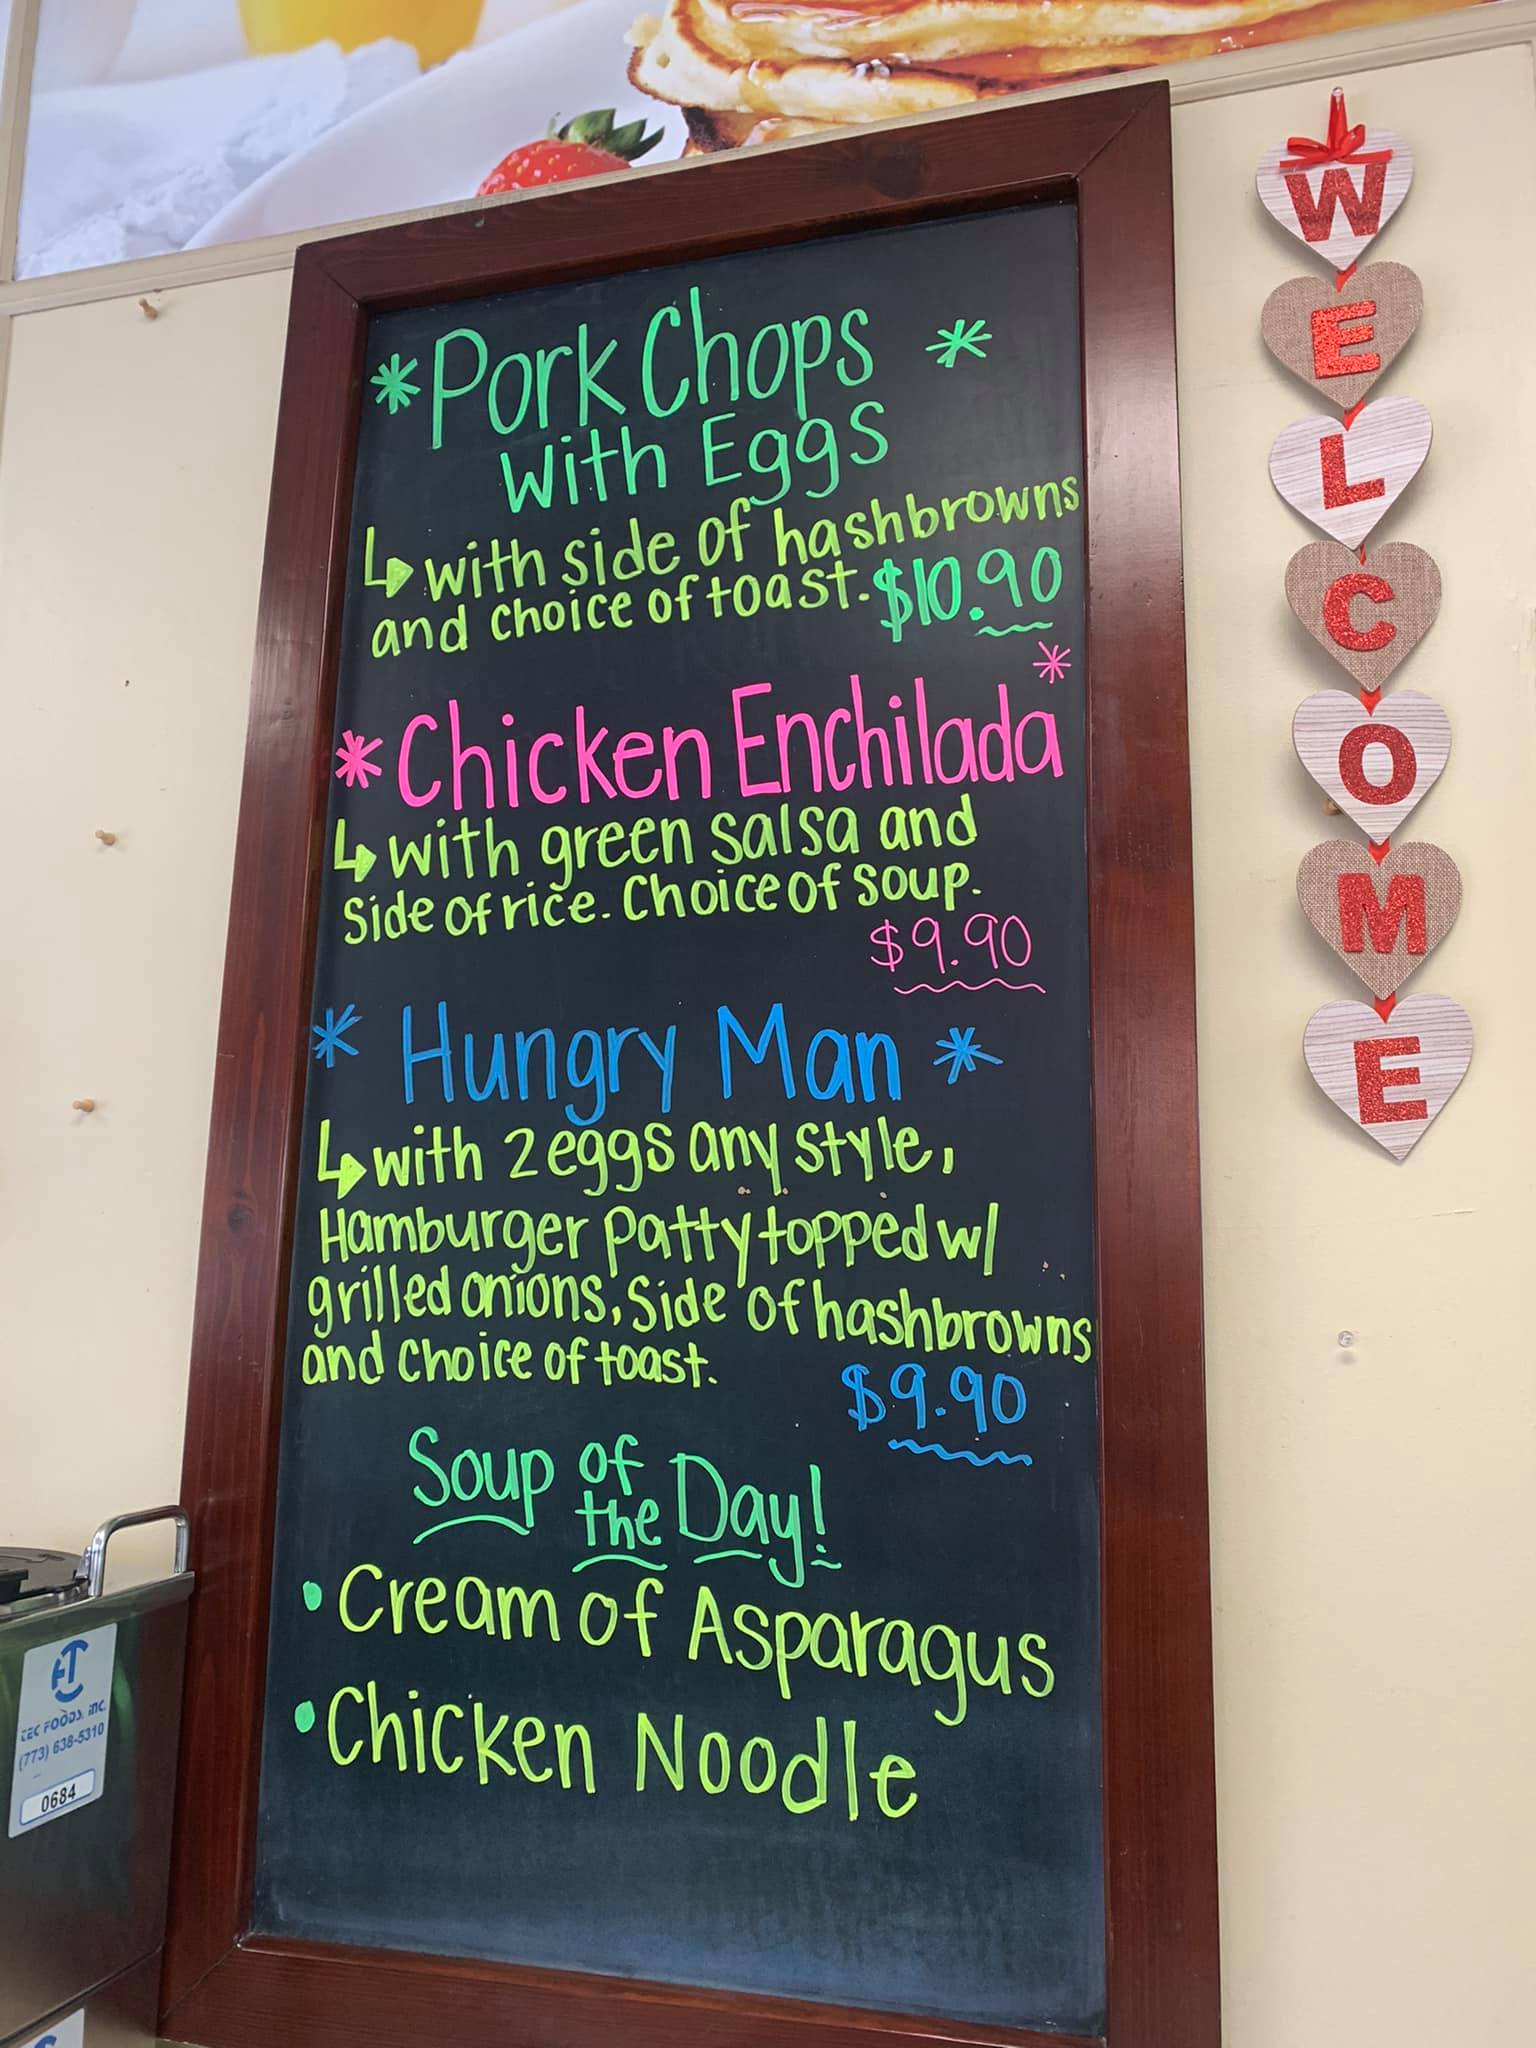 * Pork Chops *
with Eggs
↳ with side of hashbrowns
and choice of toast. $10.90
* Chicken Enchilada *
↳ with green salsa and
side of rice. Choice of soup.
$9.90
* Hungry Man *
↳ with 2 eggs any style,
Hamburger patty topped w/
grilled onions, side of hashbrowns
and choice of toast.
$9.90
Soup of the Day!
• Cream of Asparagus
• Chicken Noodle
W
E
L
C
O
M
E
TEC FOODS, INC.
(773) 638-5310
0684